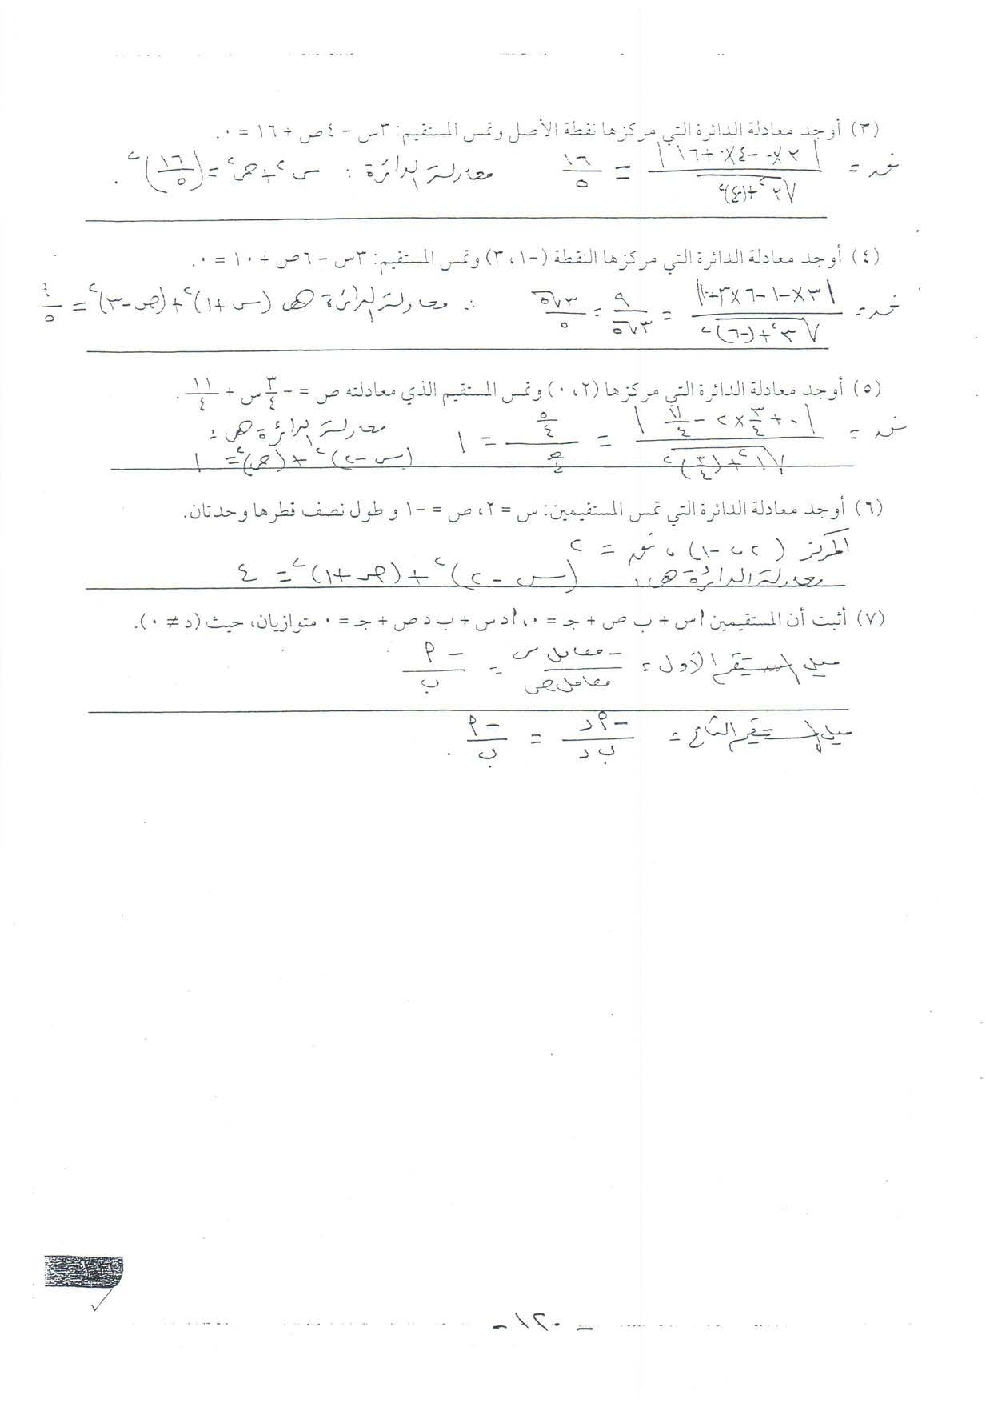 (٣) أوجد معادلة الدائرة التي مركزها نقطة الأصل وتمس المستقيم: ٣س - ٤ص + ١٦ = ٠.
نق = |٣×٠ - ٤×٠ + ١٦| / √٣² + (٤)² = ١٦/٥ معادلة الدائرة : س² + ص² = (١٦/٥)² .
(٤) أوجد معادلة الدائرة التي مركزها النقطة (-١، ٣) وتمس المستقيم: ٣س - ٦ص + ١٠ = ٠.
نق = = ٩/٣√٥ = ٣√٥/٥ ∴ معادلة الدائرة هي (س + ١)² + (ص - ٣)² = ٩/٥
(٥) أوجد معادلة الدائرة التي مركزها (٢، ٠) وتمس المستقيم الذي معادلته ص = -٣/٤ س + ١١/٤.
نق = |٠ + ٣/٤ × ٢ - ١١/٤| / √١² + (٣/٤)² = ٥/٤ / ٥/٤ = ١ معادلة الدائرة هي :
(س - ٢)² + (ص)² = ١
(٦) أوجد معادلة الدائرة التي تمس المستقيمين: س = ٢، ص = -١ و طول نصف قطرها وحدتان.
المركز (٢، -١) ، نق = ٢
معادلة الدائرة هي: (س - ٢)² + (ص + ١)² = ٤
(٧) أثبت أن المستقيمين أس + ب ص + جـ = ٠، أ د س + ب د ص + جـ = ٠ متوازيان، حيث (د ≠ ٠).
ميل المستقيم الأول = - معامل س / معامل ص = - أ / ب
ميل المستقيم الثاني = - أ د / ب د = - أ / ب .